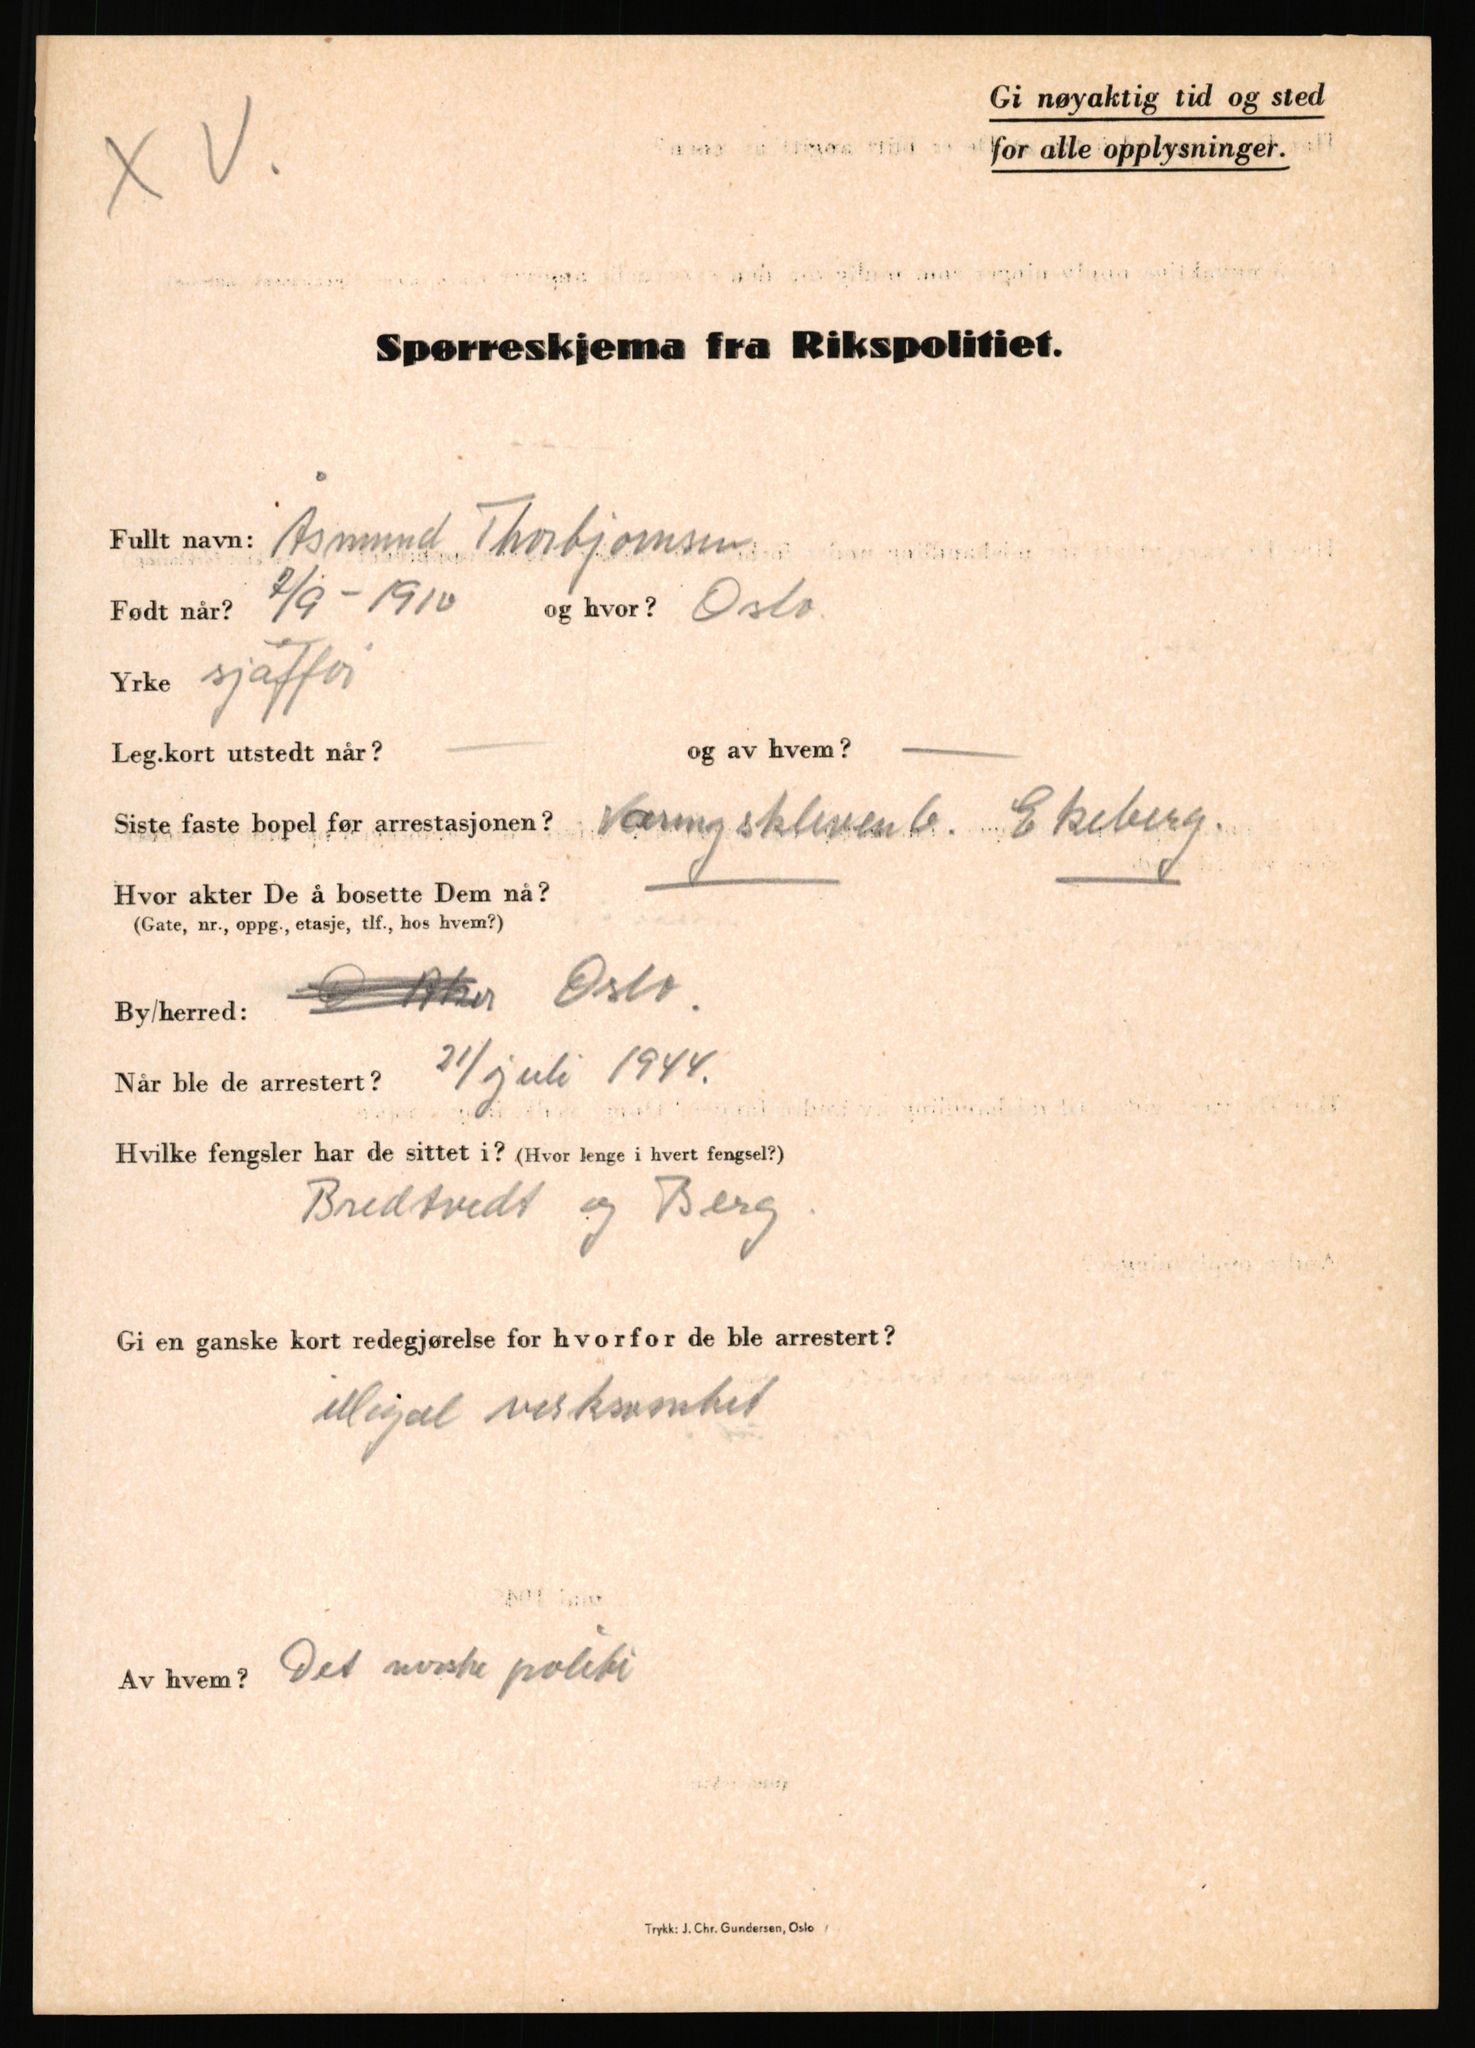 Gi nøyaktig tid og sted
for alle opplysninger.
X V.
Spørreskjema fra Rikspolitiet.
Fullt navn: Åsmund Thorbjørnsen
Født når? 7/9 - 1910 og hvor? Oslo.
Yrke sjåffør
Leg.kort utstedt når? — og av hvem? —
Siste faste bopel før arrestasjonen? Væringskleven 6. Ekeberg.
Hvor akter De å bosette Dem nå?
(Gate, nr., oppg., etasje, tlf., hos hvem?)
By/herred: Aker Oslo.
Når ble de arrestert? 21/juli 1944.
Hvilke fengsler har de sittet i? (Hvor lenge i hvert fengsel?)
Bredtvedt og Berg.
Gi en ganske kort redegjørelse for hvorfor de ble arrestert?
illigal verksomhet
Av hvem? Det norske politi
Trykk: J. Chr. Gundersen, Oslo